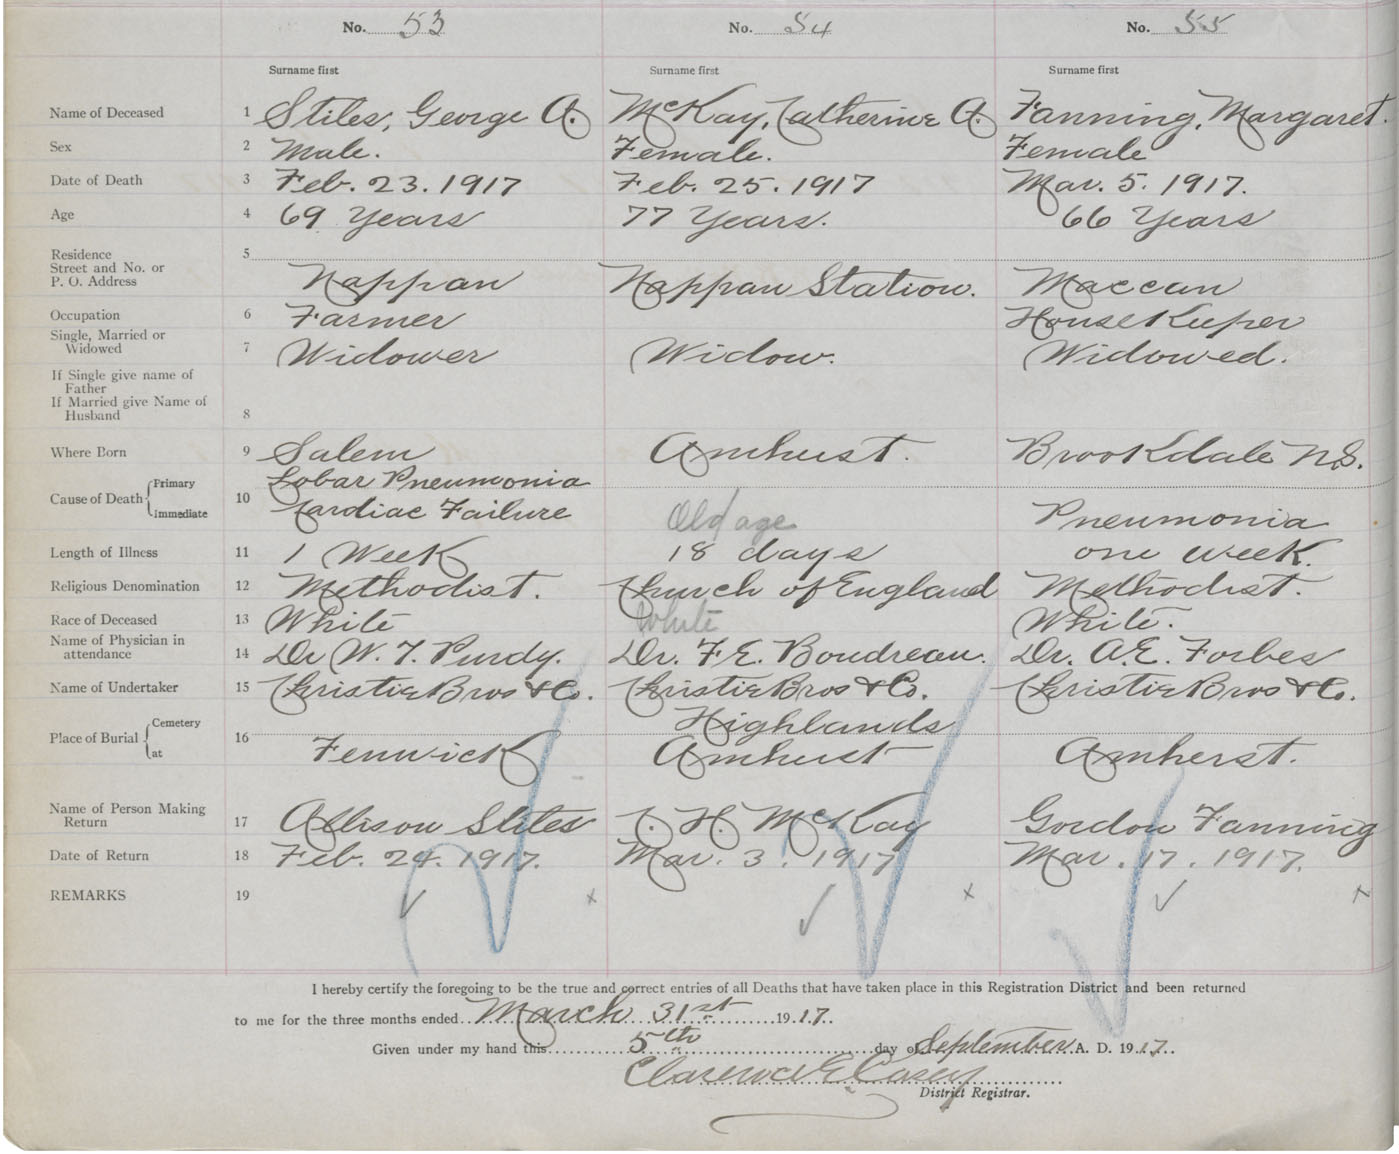 No. 53 No. 54 No. 55
Surname first Surname first Surname first
Name of Deceased 1 Stiles, George A. McKay, Catherine A. Fanning, Margaret.
Sex 2 Male. Female. Female
Date of Death 3 Feb. 23. 1917 Feb. 25. 1917 Mar. 5. 1917.
Age 4 69 Years 77 Years. 66 Years
Residence 5
Street and No. or
P. O. Address Nappan Nappan Station. Maccan
Occupation 6 Farmer HouseKeeper
Single, Married or
Widowed 7 Widower Widow. Widowed.
If Single give name of
Father
If Married give Name of
Husband 8
Where Born 9 Salem Amhurst. Brookdale N.S.
Cause of Death Primary Lobar Pneumonia
Immediate 10 Kardiac Failure Old age Pneumonia
Length of Illness 11 1 Week 18 days one week.
Religious Denomination 12 Methodist. Church of England Methodist.
Race of Deceased 13 White White White.
Name of Physician in
attendance 14 Dr W. T. Purdy. Dr. F. E. Boudreau. Dr. A. E. Forbes
Name of Undertaker 15 Christie Bros & Co. Christie Bros & Co. Christie Bros & Co.
Place of Burial Cemetery 16 Highlands
at Fenwick Amhurst Amherst.
Name of Person Making
Return 17 Allison Stiles H. McKay Gordon Fanning
Date of Return 18 Feb. 24. 1917. Mar. 3. 1917 Mar. 17. 1917.
REMARKS 19
I hereby certify the foregoing to be the true and correct entries of all Deaths that have taken place in this Registration District and been returned
to me for the three months ended March 31st 1917.
Given under my hand this 5th day of September A. D. 1917.
Clarence E. Casey
District Registrar.